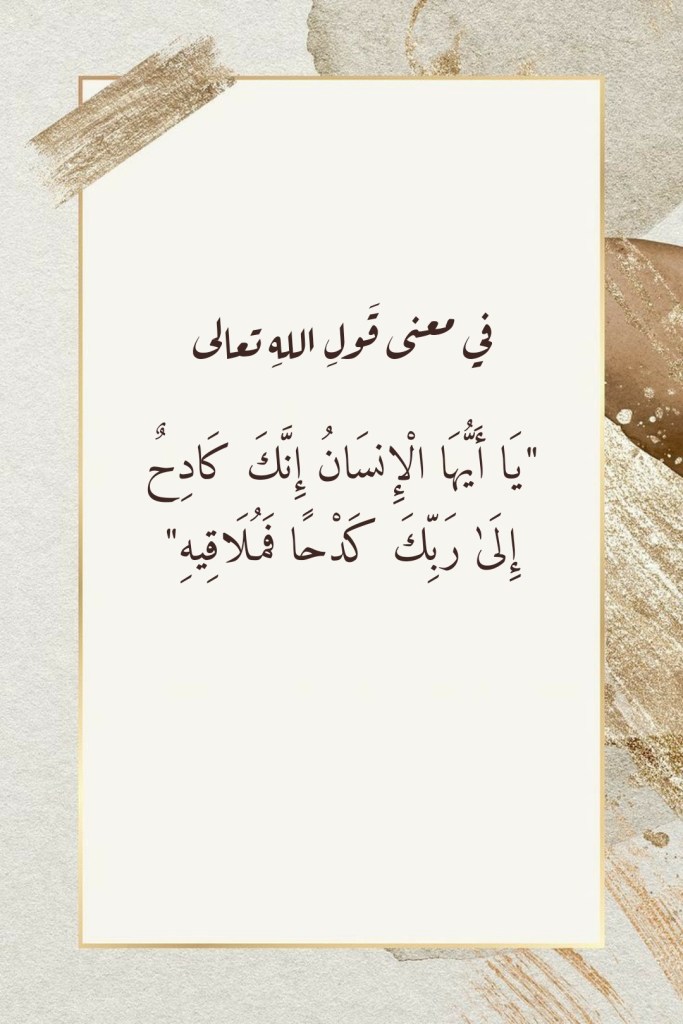 في معنى قَولِ اللهِ تعالى
"يَا أَيُّهَا الْإِنسَانُ إِنَّكَ كَادِحٌ
إِلَىٰ رَبِّكَ كَدْحًا فَمُلَاقِيهِ"